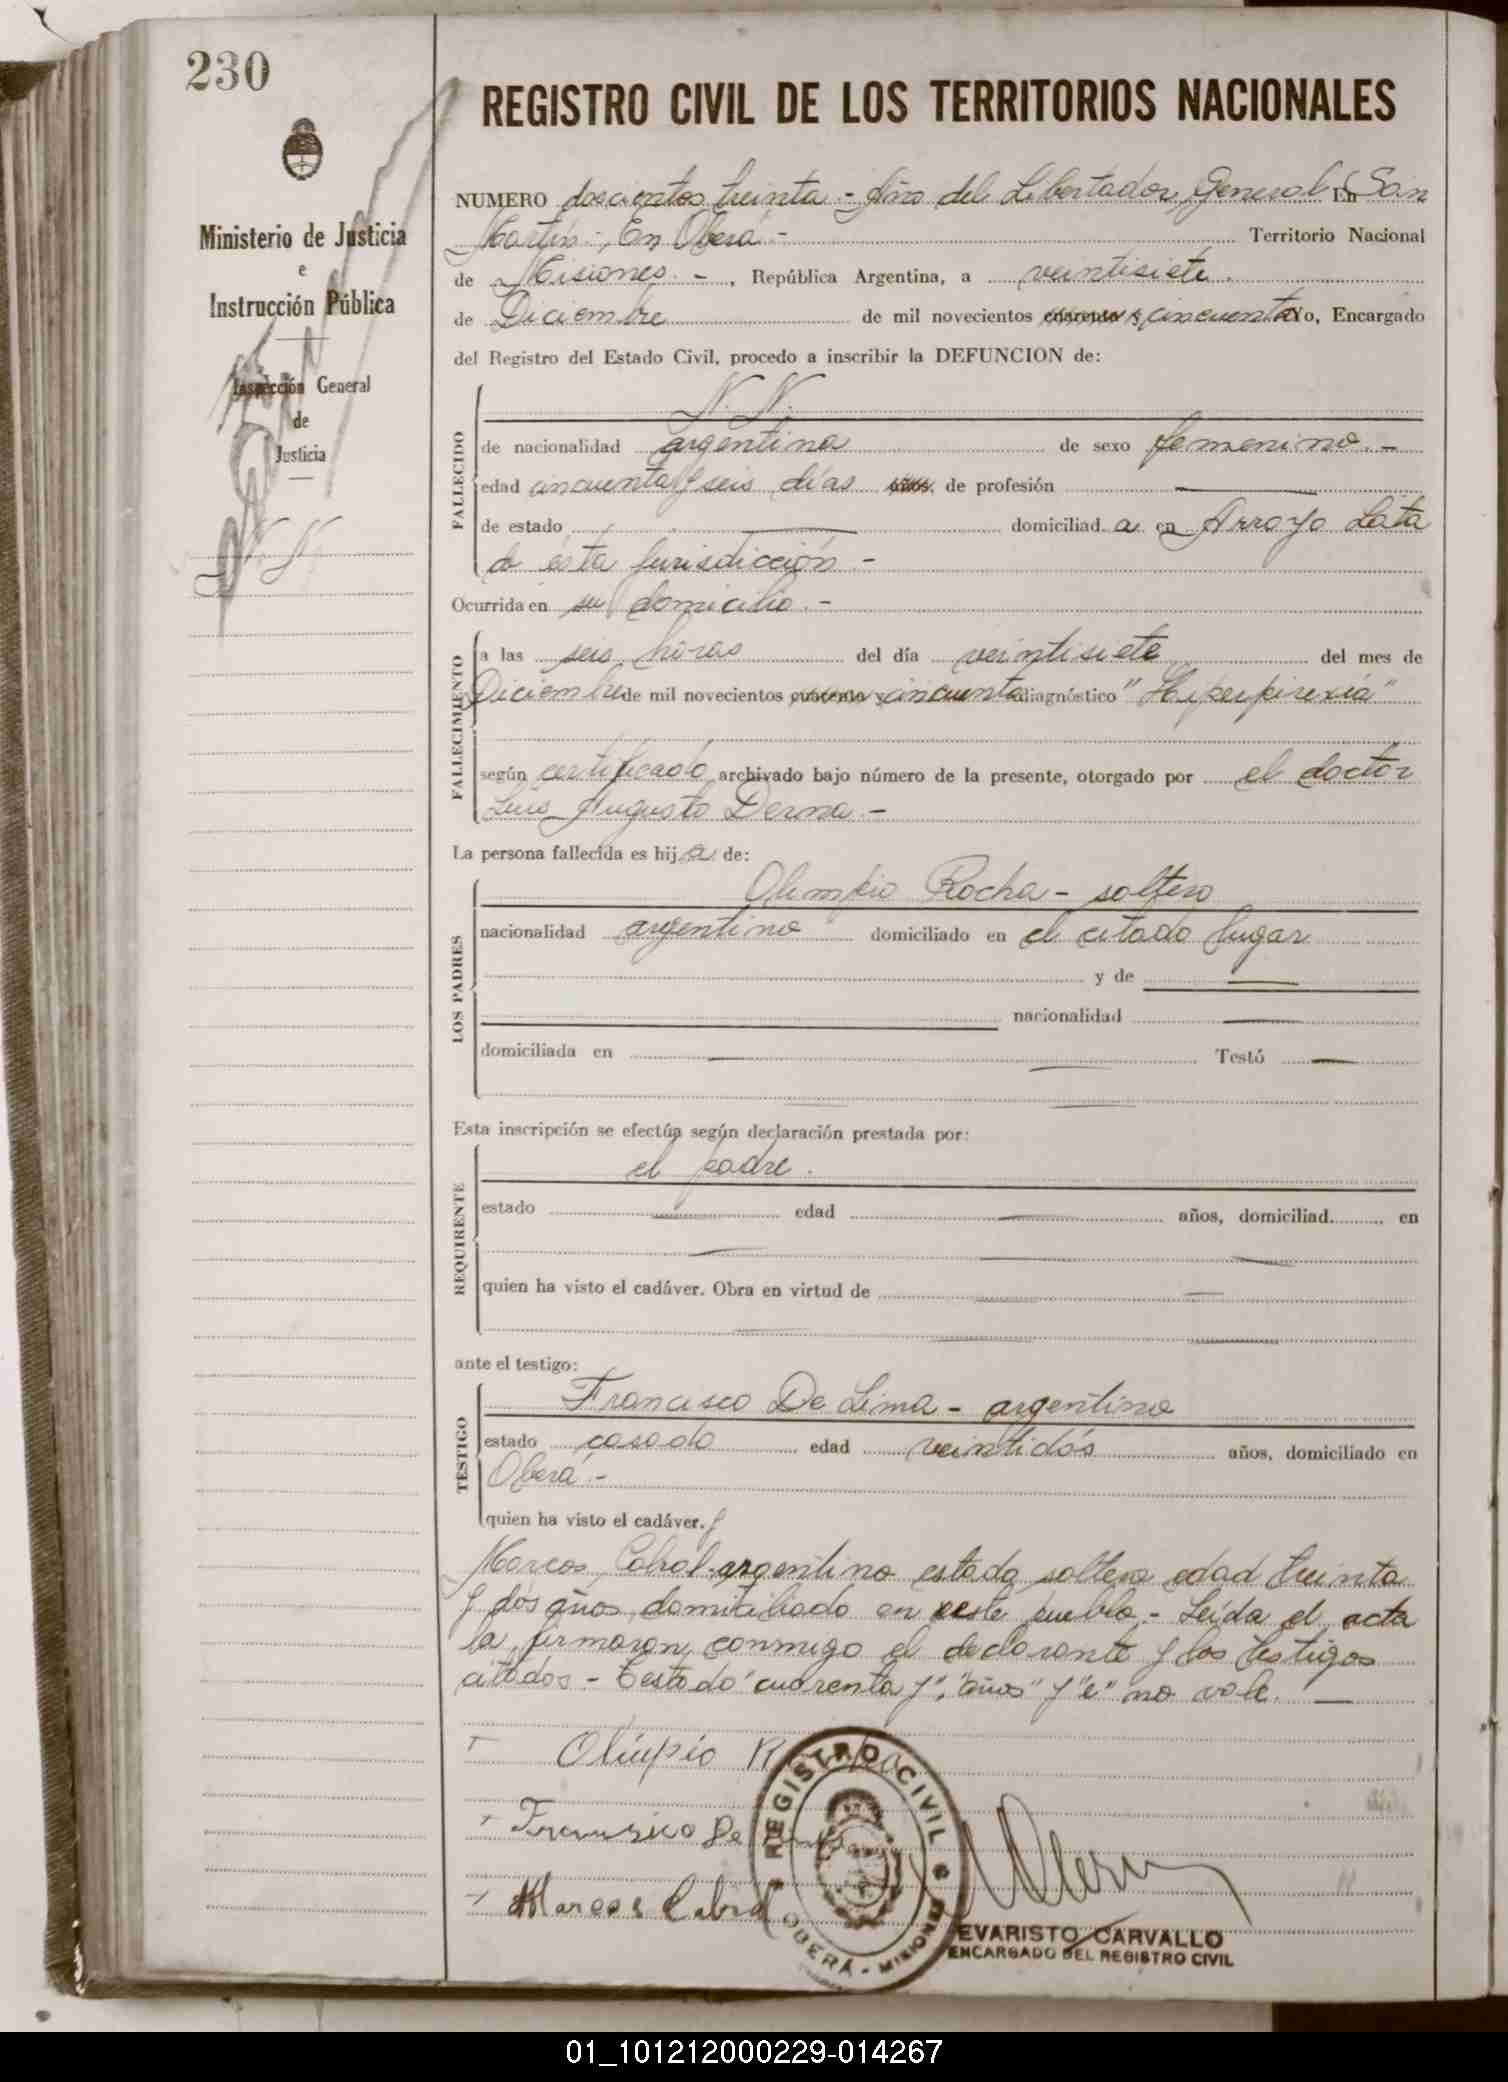 230
REGISTRO CIVIL DE LOS TERRITORIOS NACIONALES
Ministerio de Justicia
e
Instrucción Pública
Inspección General
de
Justicia
N. N.
NUMERO doscientos treinta - Año del Libertador General En San
Martín - En Oberá - Territorio Nacional
de Misiones - , República Argentina, a veintisiete
de Diciembre de mil novecientos cuarenta y cincuenta Yo, Encargado
del Registro del Estado Civil, procedo a inscribir la DEFUNCION de:
FALLECIDO
N. N.
de nacionalidad argentina de sexo femenino -
edad cincuenta y seis días años, de profesión —
de estado — domiciliad a en Arroyo Lata
de ésta jurisdicción -
Ocurrida en su domicilio -
FALLECIMIENTO
a las seis horas del día veintisiete del mes de
Diciembre de mil novecientos cuarenta y cincuenta diagnóstico "Hiperpirexia"
según certificado archivado bajo número de la presente, otorgado por el doctor
Luis Augusto Derna -
La persona fallecida es hij a de:
LOS PADRES
Olimpio Rocha - soltero
nacionalidad argentino domiciliado en el citado lugar
y de —
nacionalidad —
domiciliada en — Testó —
Esta inscripción se efectúa según declaración prestada por:
REQUIRENTE
el padre.
estado — edad — años, domiciliad en
quien ha visto el cadáver. Obra en virtud de —
ante el testigo:
TESTIGO
Francisco De Lima - argentino
estado casado edad veintidós años, domiciliado en
Oberá -
quien ha visto el cadáver. y
Marcos Cabral argentino estado soltero edad treinta
y dós años domiciliado en eeste pueblo - Leída el acta
la firmaron conmigo el declarante y los testigos
citados - Testado "cuarenta y", "años" y "e" no vale. —
Olimpio Rocha
Francisco De Lima
Marcos Cabral
REGISTRO CIVIL
OBERÁ - MISIONES
EVARISTO CARVALLO
ENCARGADO DEL REGISTRO CIVIL
01_101212000229-014267